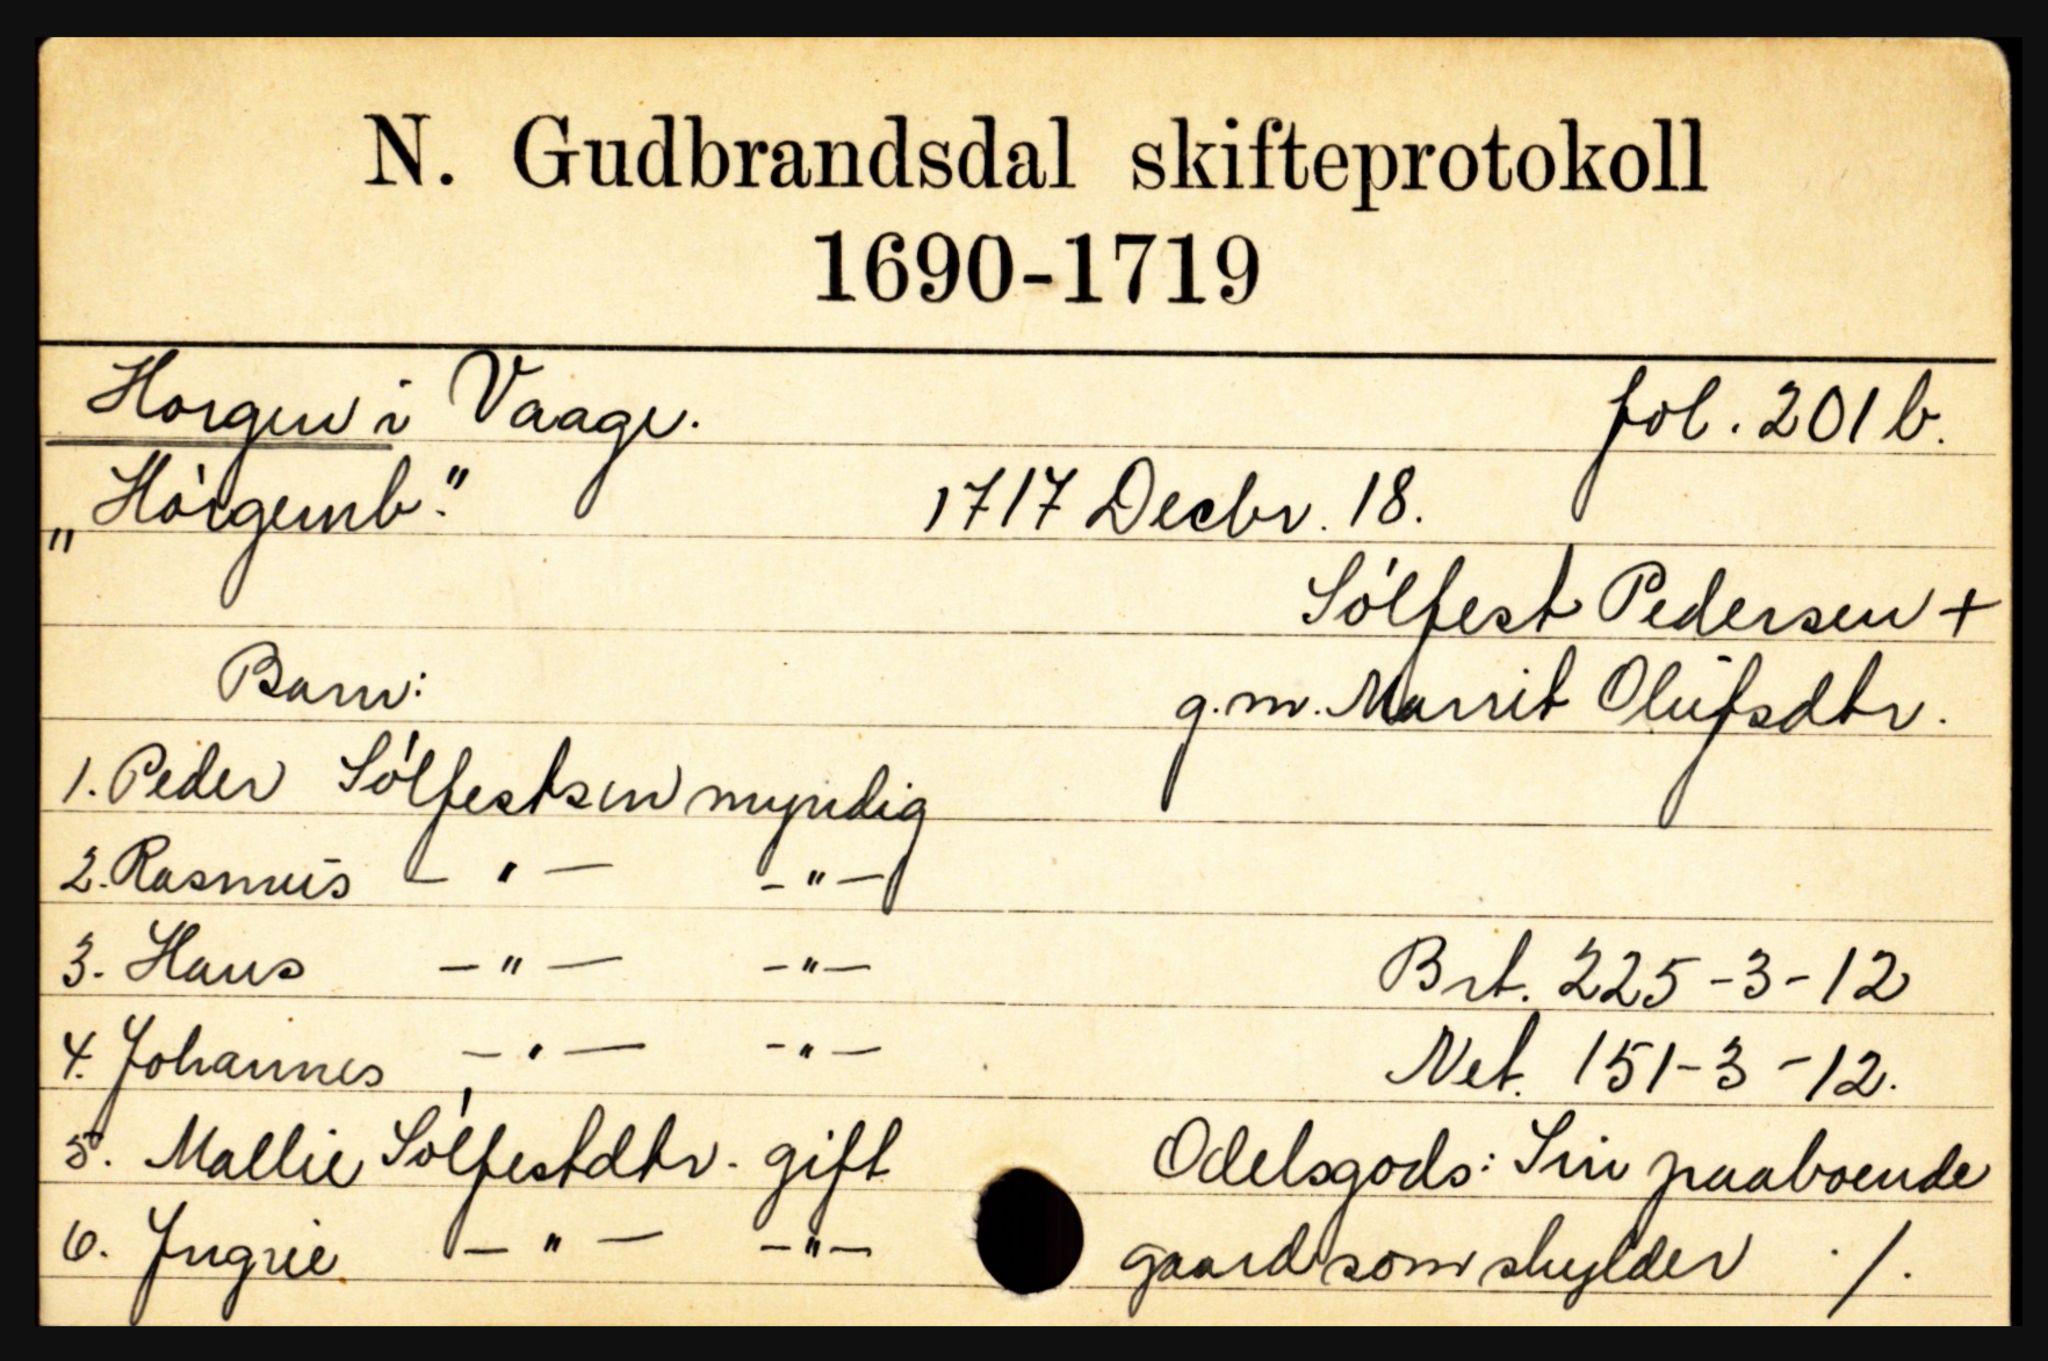 N. Gudbrandsdal skifteprotokoll
1690-1719
Horgen i Vaage. fol. 201 b.
„Hórgemb." 1717 Decbr. 18.
Sólfest Pedersen +
Barn: g.m. Marrit Olufsdtr.
1. Peder Sólfestsen myndig
2. Rasmus — " — — " —
3. Hans — " — — " — Brt. 225-3-12
4. Johannes — " — — " — Net. 151-3-12.
5. Mallie Sólfestdtr. gift Odelsgods: Sin paaboende
6. Ingrie — " — — " — gaard som skylder ./.